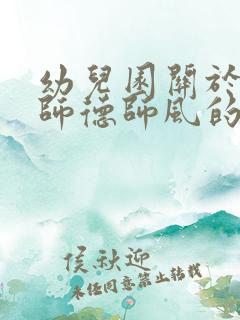 幼兒園關於
師德師風的
侯秋迎
未經同意禁止轉載